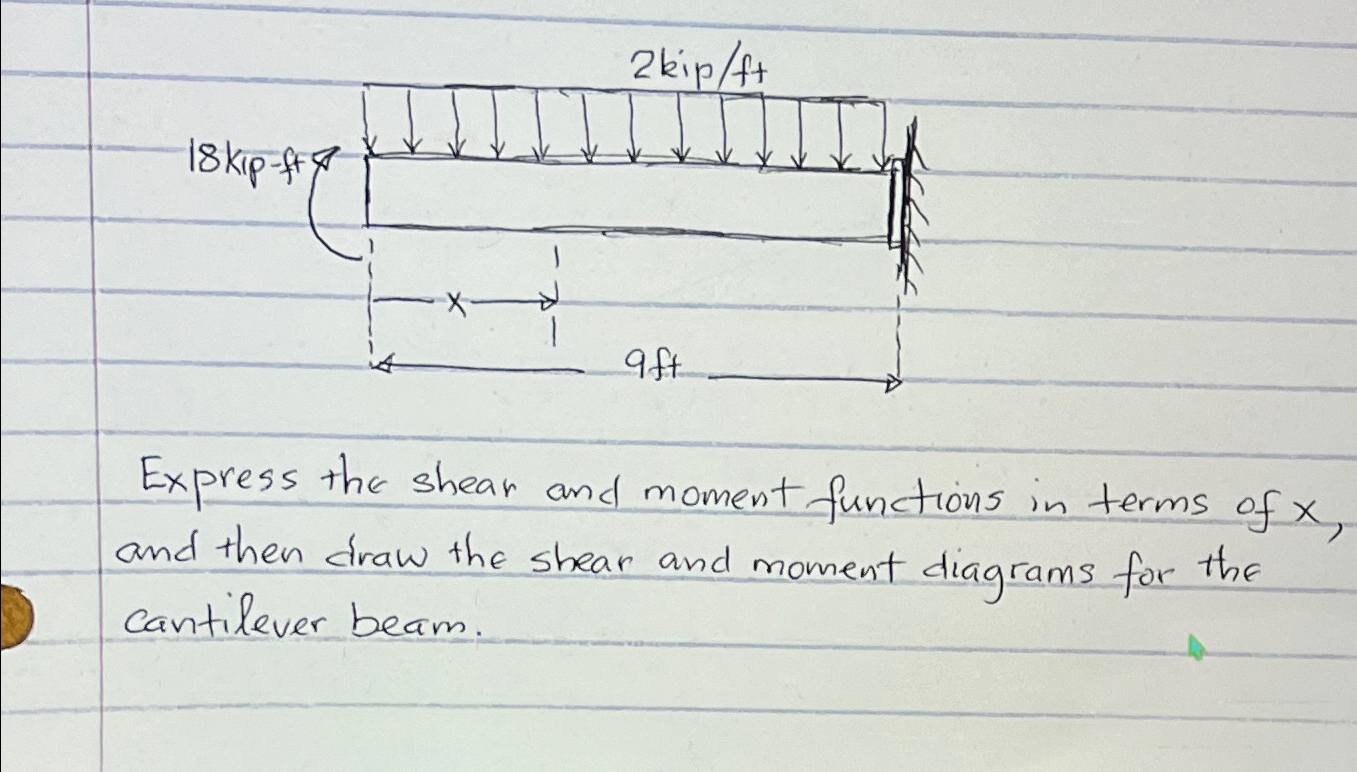 2kip/ft
18kip-ft
x
9ft
Express the shear and moment functions in terms of x,
and then draw the shear and moment diagrams for the
cantilever beam.